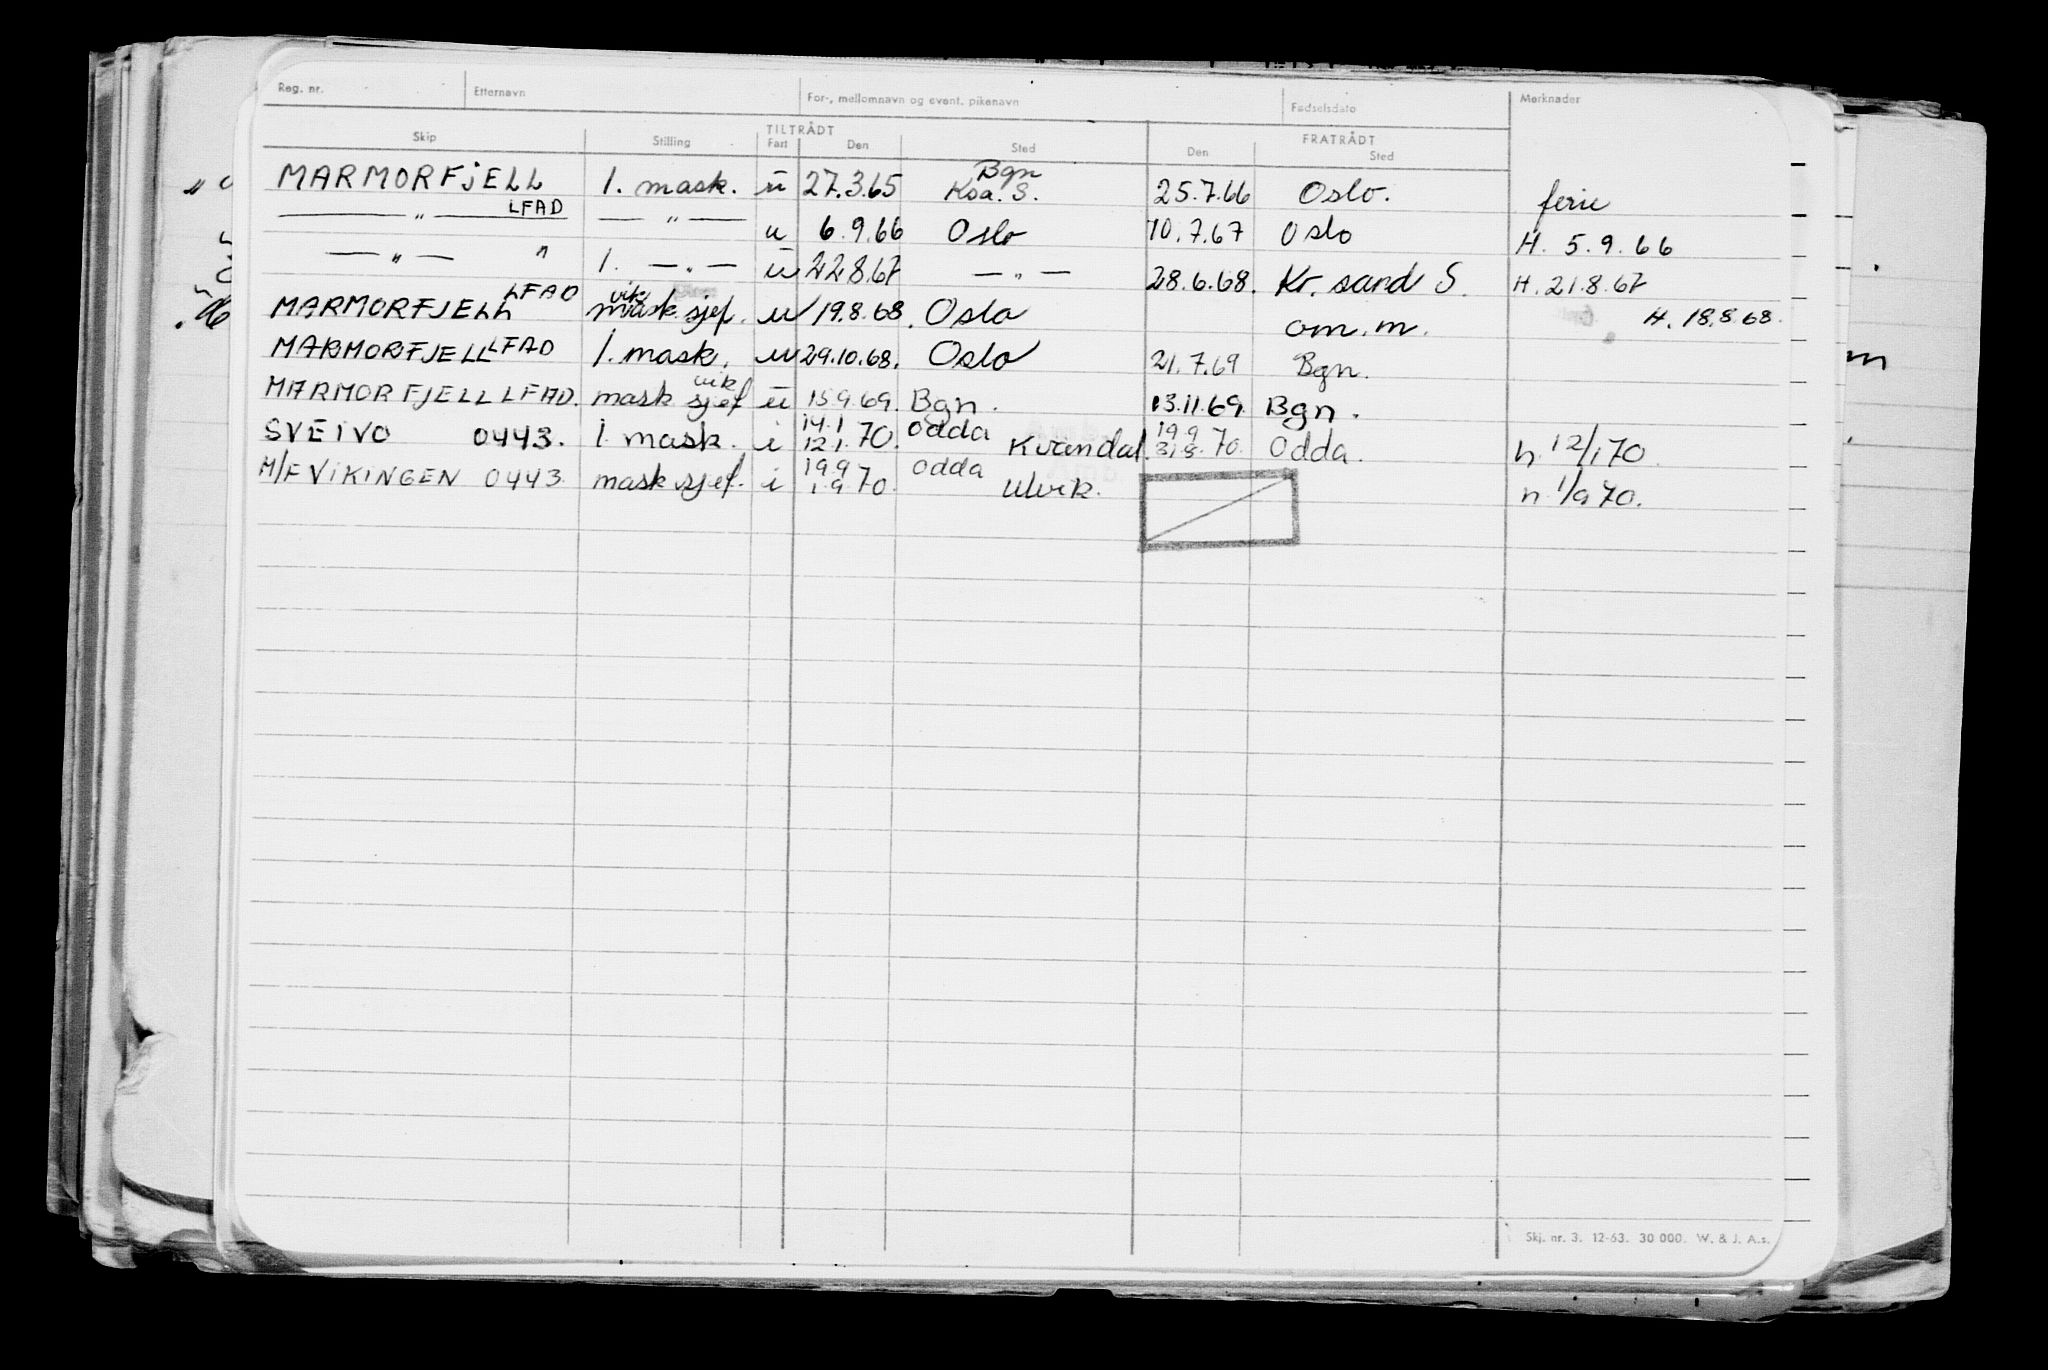 Reg. nr. Etternavn For-, mellomnavn og event. pikenavn Fødselsdato Merknader
Skip Stilling TILTRÅDT Fart Den Sted FRATRÅDT Den Sted
MARMORFJELL 1. mask. u 27.3.65 Bgn Ksa. S. 25.7.66 Oslo. ferie
— " — LFAD — " — u 6.9.66 Oslo 10.7.67 Oslo H. 5.9.66
— " — " 1. — " — u 22.8.67 — " — 28.6.68. Kr. sand S. H. 21.8.67
MARMORFJELL LFAD vik mask. sjef. u 19.8.68. Oslo om. m. H. 18.8.68.
MARMORFJELL LFAD 1. mask. u 29.10.68. Oslo 21.7.69 Bgn.
MARMORFJELL LFAD. mask vik sjef u 15.9.69. Bgn. 13.11.69. Bgn.
SVEIVO 0443. 1. mask. i 14.1 12.1.70. Odda Kvandal. 19.9 31.8.70. Odda. h. 12/1 70.
M/F VIKINGEN 0443. mask sjef. i 19.9 1.9.70. Odda Ulvik. h 1/9 70.
Skj. nr. 3. 12-63. 30 000. W. & J. A.s.